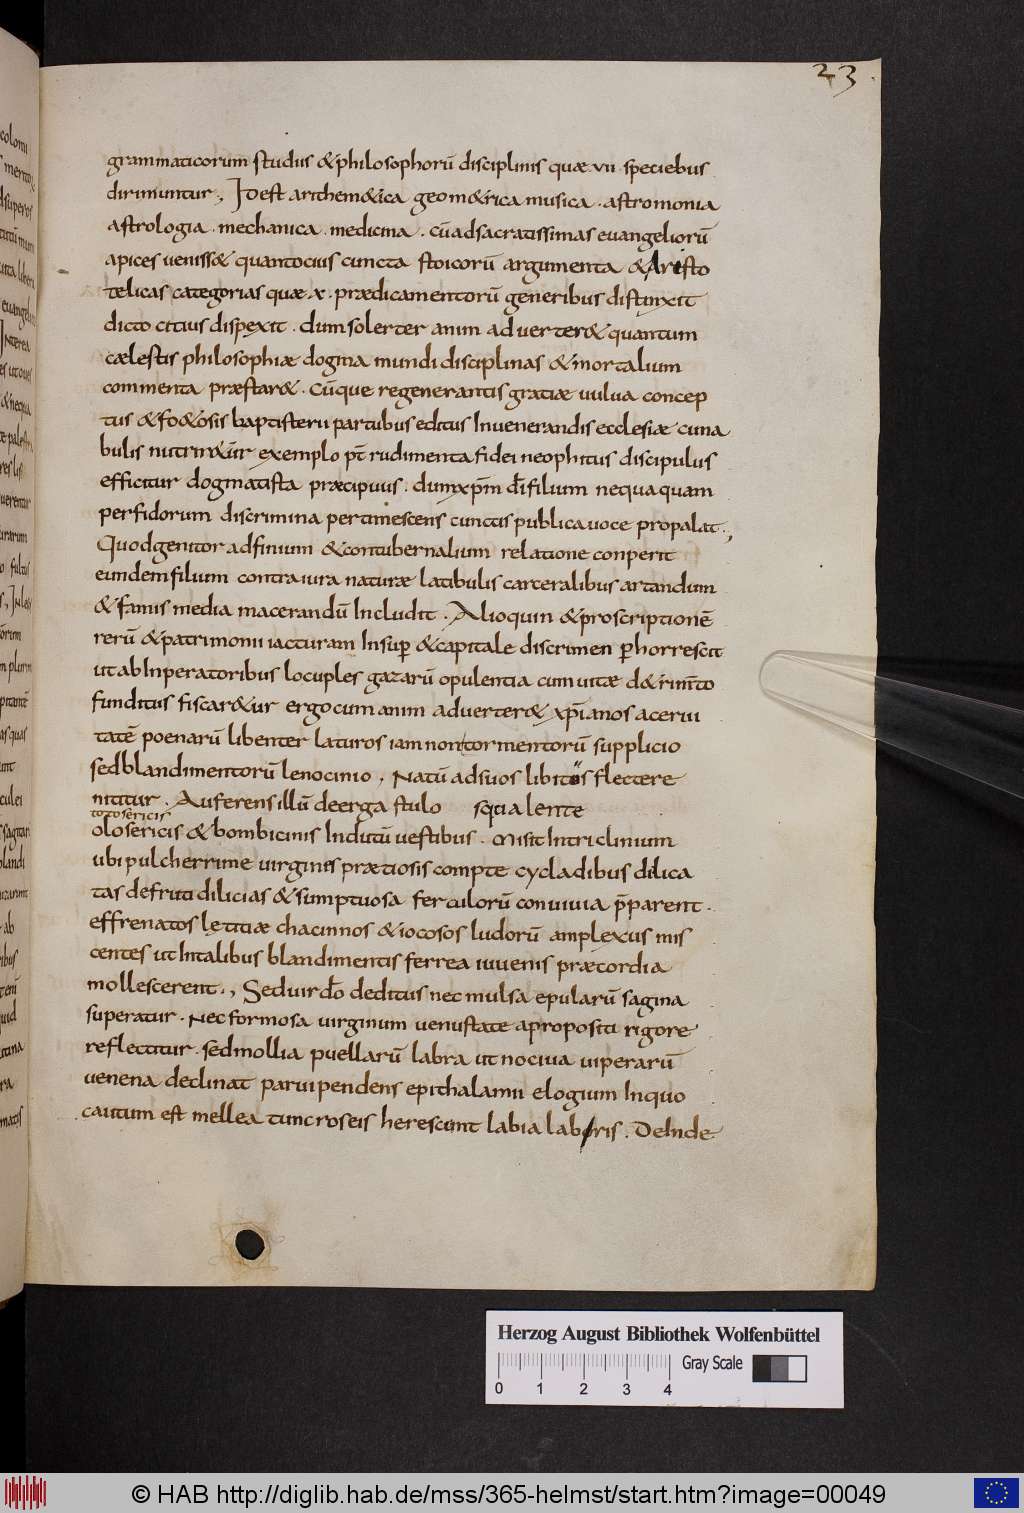 23
grammaticorum studiis & philosophorū disciplinis quæ vii speciebus
dirimuntur, Idest arithem&ica geom&rica musica · astronomia
astrologia · mechanica · medicina · cū adsacratissimas evangeliorū
apices veniss& quantocius cuncta stoicorū argumenta & Aristo
telicas categorias quæ · x · prædicamentorū generibus distinxit
dicto citius dispexit · dum solerter anim adverter& quantum
cælestis philosophiæ dogma mundi disciplinas & mortalium
commenta præstar& · cūque regenerantis gratiæ vulva concep
tus & fo&osis baptisterii partubus editus Invenerandis ecclesiæ cuna
bulis nutrir&ur exemplo p̄t rudimenta fidei neophitus discipulus
efficitur dogmatista præcipuus · dum xp̄m d̄i filium nequaquam
perfidorum discrimina pertimescens cunctis publica voce propalat ·,
Quod genitor adfinium & contubernalium relatione conperit
eundem filium contra iura naturæ latibulis carceralibus artandum
& famis media macerandū Includit · Alioquin & proscriptionē
rerū & patrimonii iacturam Insup̄ & capitale discrimen p̄horrescit
ut ab Inperatoribus locuples gazarū opulentia cum vitæ d&rim̄to
funditus fiscar&ur ergo cum anim adverter& xp̄ianos acervi
tatē poenarū libenter laturos iam non tormentorū supplicio
sed blandimentorū lenocinio, Natū ad suos libitus flectere
nititur · Auferens illū de ergastulo squalente
totosericis
olosericis & bombicinis Indutū vestibus · misit In triclinium
ubi pulcherrime virginis prætiosis compte cycladibus dilica
tas defruti dilicias & sumptuosa ferculorū convivia p̄parent ·
effrenatos letitiæ chacinnos & iocosos ludorū amplexus mis
centes ut In talibus blandimentis ferrea iuvenis præcordia
mollescerent ·, Sed vir d̄o deditus nec mulsa epularū sagina
superatur · Nec formosa virginum venustate a propositi rigore
reflectitur · sed mollia puellarū labra ut nociva viperarū
venena declinat parvi pendens epithalamii elogium In quo
cautum est mellea tunc roseis herescunt labia labris · DeInde
Herzog August Bibliothek Wolfenbüttel
Gray Scale
0 1 2 3 4
© HAB http://diglib.hab.de/mss/365-helmst/start.htm?image=00049